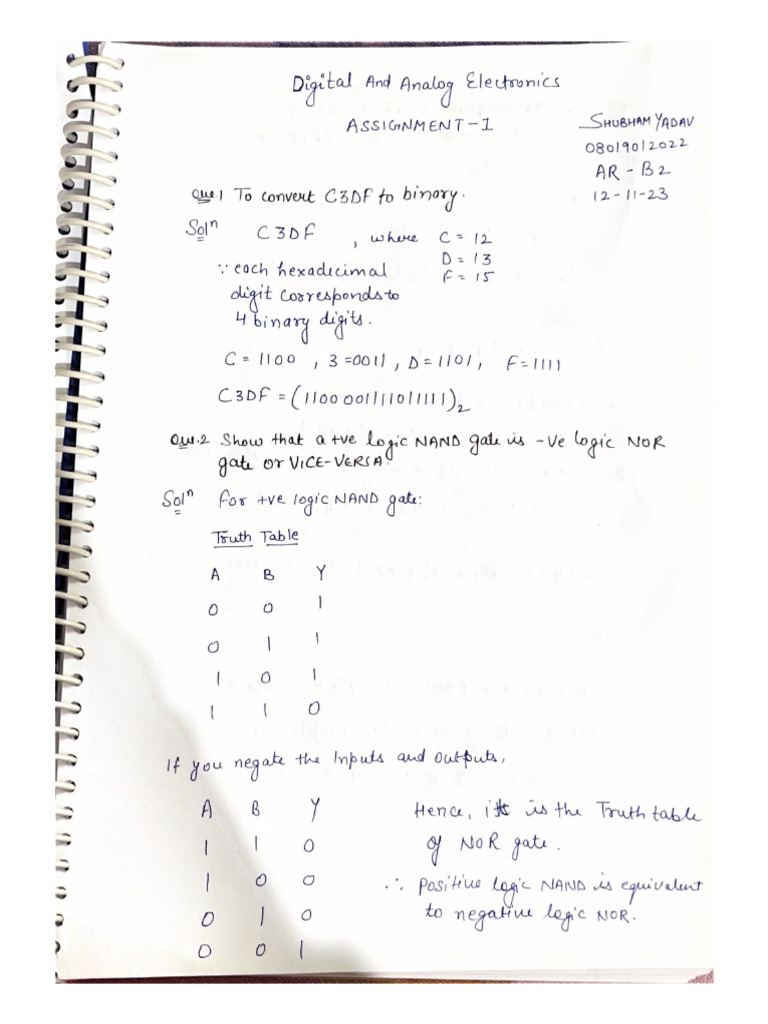 Digital And Analog Electronics
ASSIGNMENT-I
SHUBHAM YADAV
08019012022
AR - B2
12-11-23
Que1 To convert C3DF to binary.
Solⁿ C3DF , where C = 12
D = 13
F = 15
∵ each hexadecimal
digit corresponds to
4 binary digits.
C = 1100 , 3 =0011 , D = 1101, F=1111
C3DF = (1100001111011111)₂
Que.2 Show that a +ve logic NAND gate is -ve logic NOR
gate or VICE-VERSA.
Solⁿ For +ve logic NAND gate:
Truth Table
A B Y
0 0 1
0 1 1
1 0 1
1 1 0
If you negate the Inputs and outputs,
A B Y
1 1 0
1 0 0
0 1 0
0 0 1
Hence, it is the Truth table
of NOR gate.
∴ Positive logic NAND is equivalent
to negative logic NOR.